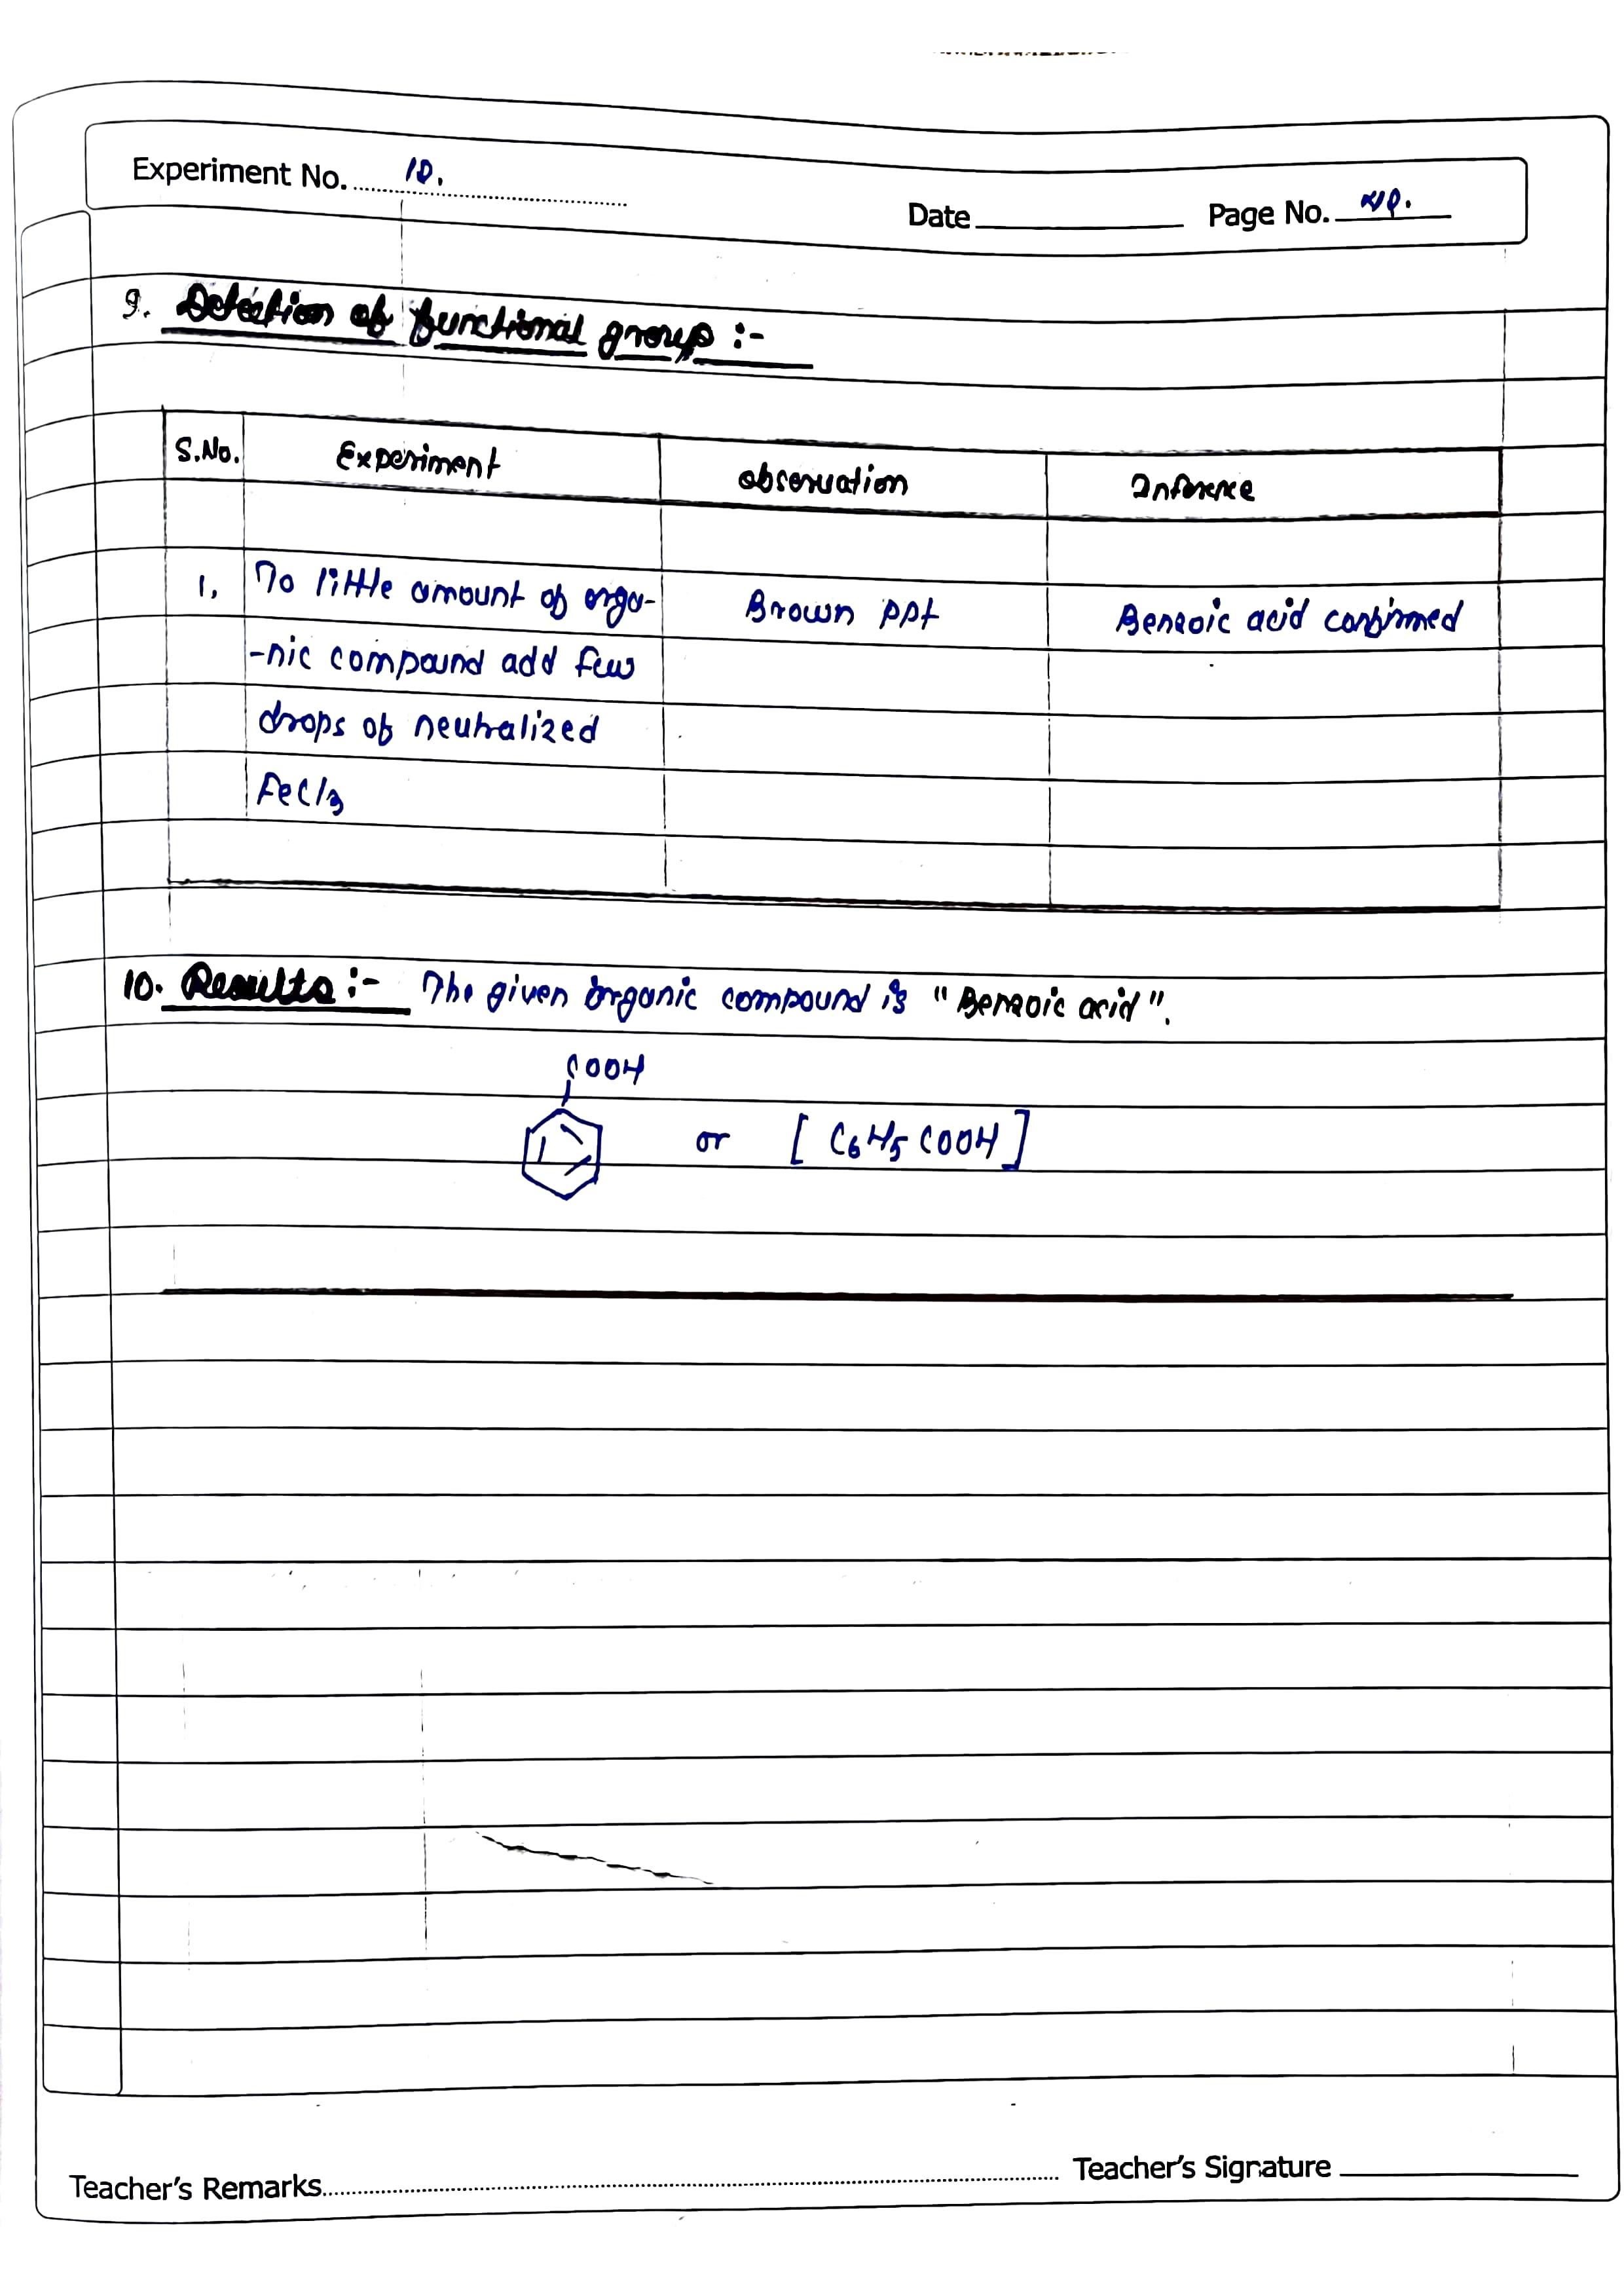 Experiment No. 10.
Date Page No.
9. Detection of functional group :-
S.No. Experiment observation Inference
1. To little amount of orga- Brown ppt Benzoic acid confirmed
-nic compound add few
drops of neutralized
FeCl3
10. Results :- The given organic compound is "Benzoic acid".
COOH
or [C6H5COOH]
Teacher's Remarks Teacher's Signature